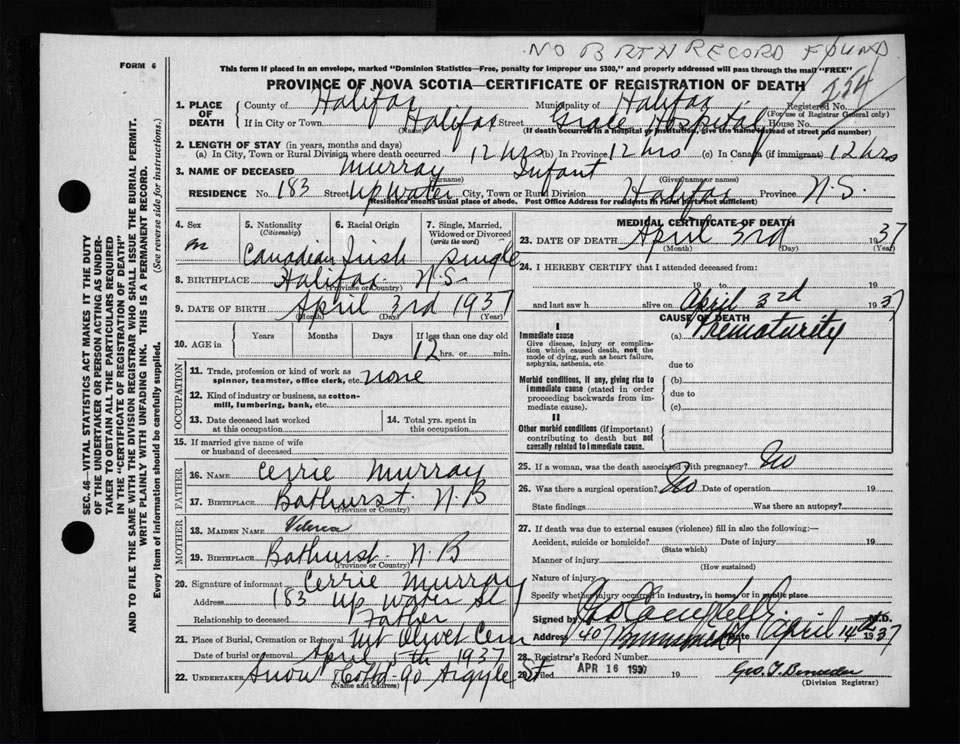 NO B RTH RECORD FOUND
FORM 6
This form if placed in an envelope, marked "Dominion Statistics—Free, penalty for improper use $300," and properly addressed will pass through the mail "FREE"
PROVINCE OF NOVA SCOTIA—CERTIFICATE OF REGISTRATION OF DEATH
254
1. PLACE OF DEATH
County of Halifax Municipality of Halifax Registered No.
(For use of Registrar General only)
If in City or Town Halifax Street Grace Hospital House No.
(Name) (If death occurred in a hospital or institution, give the name instead of street and number)
2. LENGTH OF STAY (in years, months and days)
(a) In City, Town or Rural Division where death occurred 12 hrs (b) In Province 12 hrs (c) In Canada (if immigrant) 12 hrs
3. NAME OF DECEASED Murray Infant
(Surname) (Given name or names)
RESIDENCE No. 183 Street Up Water City, Town or Rural Division Halifax Province N.S.
(Residence means usual place of abode. Post Office Address for residents in rural parts not sufficient)
4. Sex
m
5. Nationality
(Citizenship)
Canadian
6. Racial Origin
Irish
7. Single, Married, Widowed or Divorced
(write the word)
single
8. BIRTHPLACE Halifax N.S.
(Province or Country)
9. DATE OF BIRTH April 3rd 1937
(Month) (Day) (Year)
10. AGE in
Years Months Days If less than one day old
12 hrs. or min.
OCCUPATION
11. Trade, profession or kind of work as
spinner, teamster, office clerk, etc. none
12. Kind of industry or business, as cotton-
mill, lumbering, bank, etc.
13. Date deceased last worked
at this occupation
14. Total yrs. spent in
this occupation
15. If married give name of wife
or husband of deceased
FATHER
16. NAME Cerrie Murray
17. BIRTHPLACE Bathurst N.B
(Province or Country)
MOTHER
18. MAIDEN NAME
19. BIRTHPLACE Bathurst N.B
(Province or Country)
20. Signature of informant Cerrie Murray
Address 183 Up Water St
Relationship to deceased Father
21. Place of Burial, Cremation or Removal Mt Olivet Cem
Date of burial or removal April 5th 1937
22. UNDERTAKER Snow Co Ltd 90 Argyle St
(Name and address)
MEDICAL CERTIFICATE OF DEATH
23. DATE OF DEATH April 3rd 1937
(Month) (Day) (Year)
24. I HEREBY CERTIFY that I attended deceased from:
19 to 19
and last saw h alive on April 3rd 1937
CAUSE OF DEATH
I
Immediate cause (a) Prematurity
Give disease, injury or complica-
tion which caused death, not the
mode of dying, such as heart failure,
asphyxia, asthenia, etc.
due to
Morbid conditions, if any, giving rise to (b)
immediate cause (stated in order
proceeding backwards from im-
mediate cause).
due to
(c)
II
Other morbid conditions (if important)
contributing to death but not
causally related to immediate cause.
25. If a woman, was the death associated with pregnancy? No
26. Was there a surgical operation? No Date of operation 19
State findings Was there an autopsy?
27. If death was due to external causes (violence) fill in also the following:—
Accident, suicide or homicide? Date of injury 19
(State which)
Manner of injury
(How sustained)
Nature of injury
Specify whether injury occurred in industry, in home or in public place
Signed by M.D.
Address 40 Date April 14th 1937
28. Registrar's Record Number
29. Filed APR 16 1937 19
(Division Registrar)
SEC. 46—VITAL STATISTICS ACT MAKES IT THE DUTY
OF THE UNDERTAKER OR PERSON ACTING AS UNDER-
TAKER TO OBTAIN ALL THE PARTICULARS REQUIRED
IN THE "CERTIFICATE OF REGISTRATION OF DEATH"
AND TO FILE THE SAME WITH THE DIVISION REGISTRAR WHO SHALL ISSUE THE BURIAL PERMIT.
WRITE PLAINLY WITH UNFADING INK. THIS IS A PERMANENT RECORD.
Every item of information should be carefully supplied. (See reverse side for instructions.)